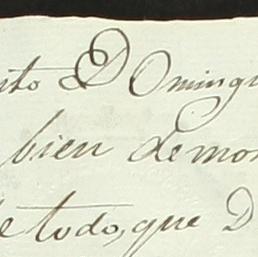 sto Doming
bien demos
de todo, que D